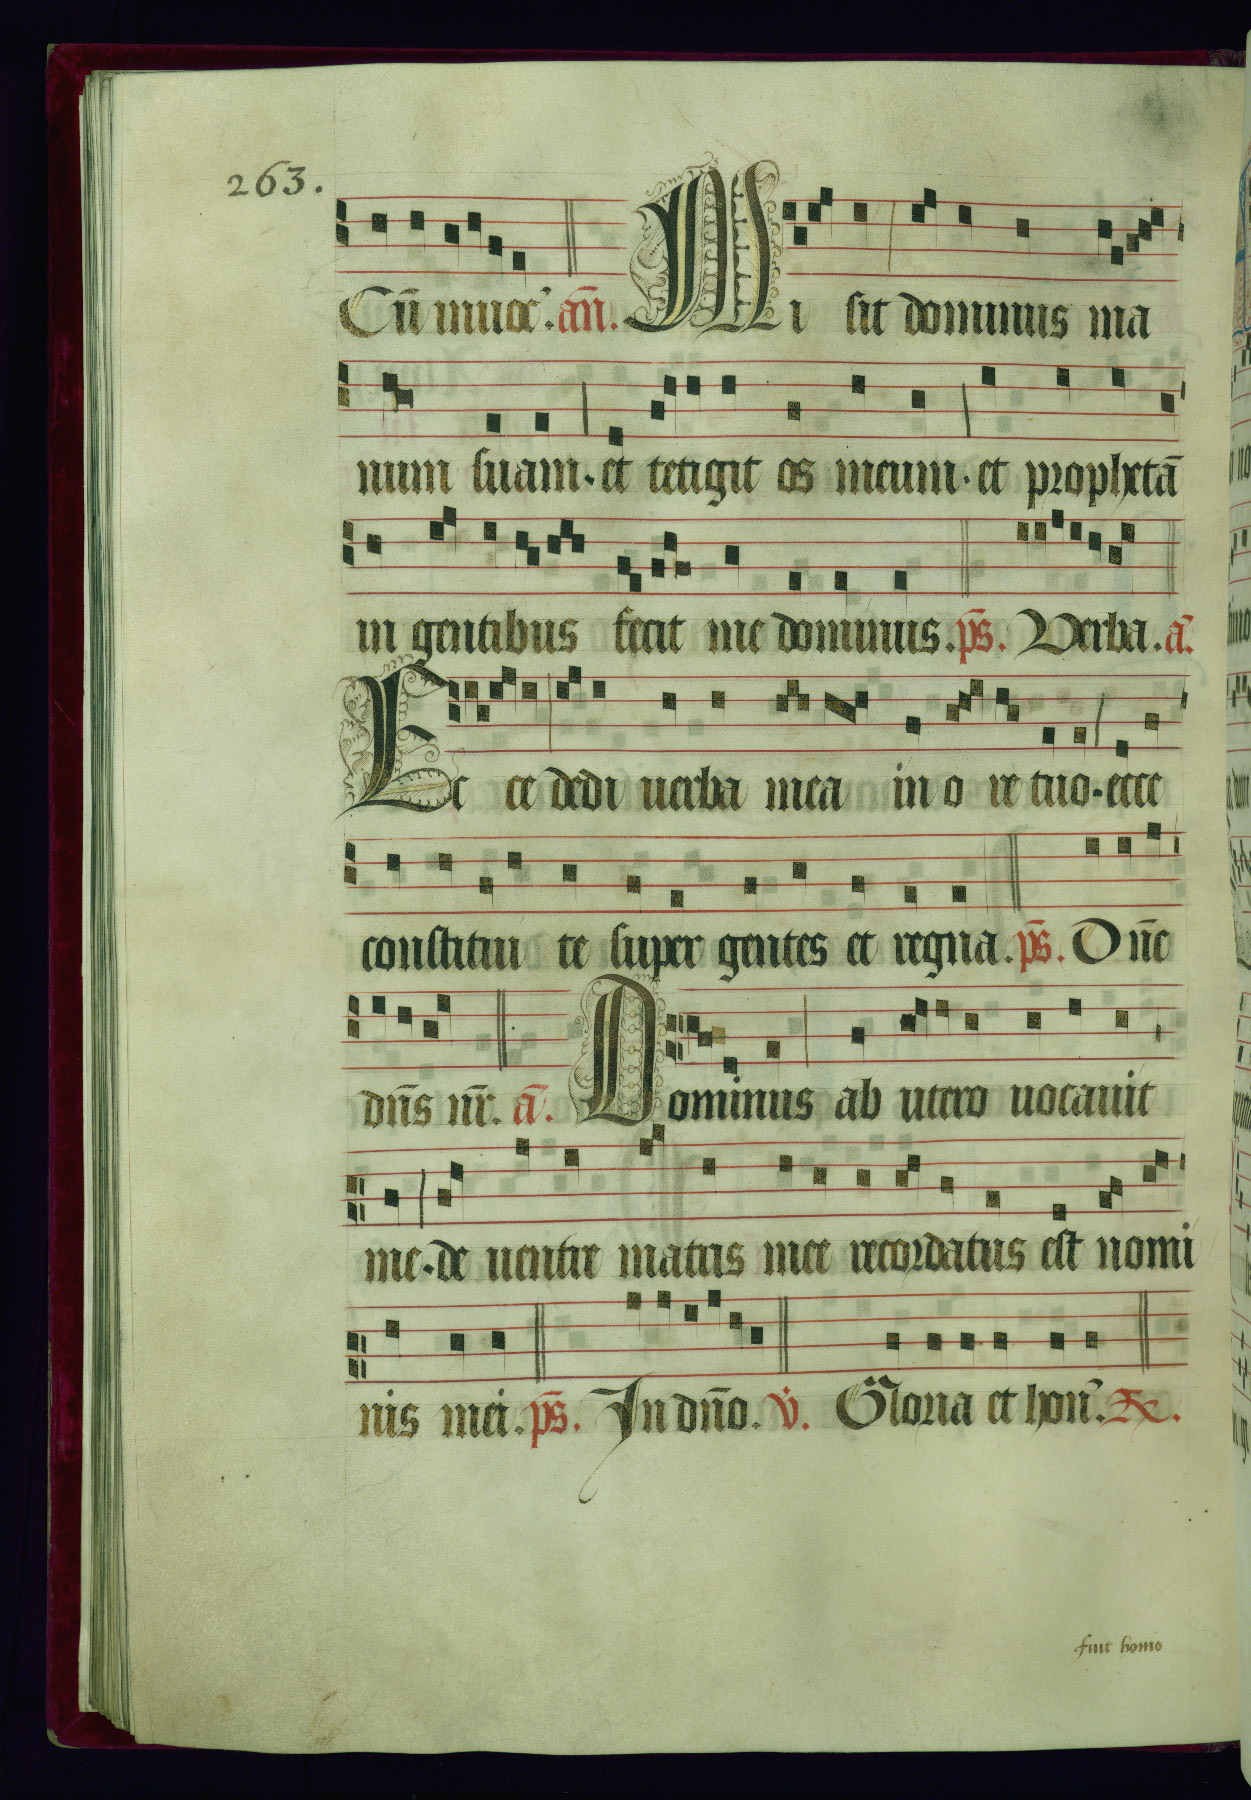 263.
Cū inuoc̄. an̄. Mi sit dominus ma
num suam. et tetigit os meum. et prophetā
in gentibus fecit me dominus. ps̄. Verba. a̅.
Ec ce dedi uerba mea in o re tuo. ecce
constitui te super gentes et regna. ps̄. Dn̄e
dn̄s nr̄. a̅. Dominus ab utero uocauit
me. de uentre matris mee recordatus est nomi
nis mei. ps̄. In dn̄o. v̄. Gloria et hon̄. R.
fuit homo